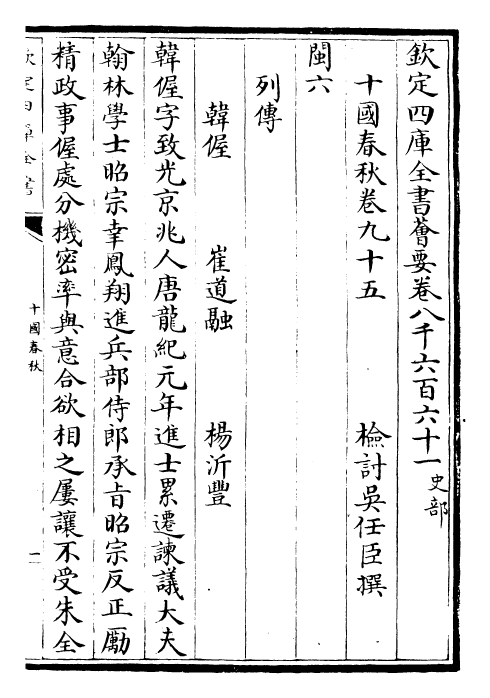 欽定四庫全書薈要卷八千六百六十一史部
十國春秋卷九十五
檢討吳任臣撰
閩六
列傳
韓偓 崔道融 楊沂豐
韓偓字致光京兆人唐龍紀元年進士累遷諫議大夫
翰林學士昭宗幸鳳翔進兵部侍郎承旨昭宗反正勵
精政事偓處分機密率與意合欲相之屢讓不受朱全
欽定四庫全書
十國春秋
一